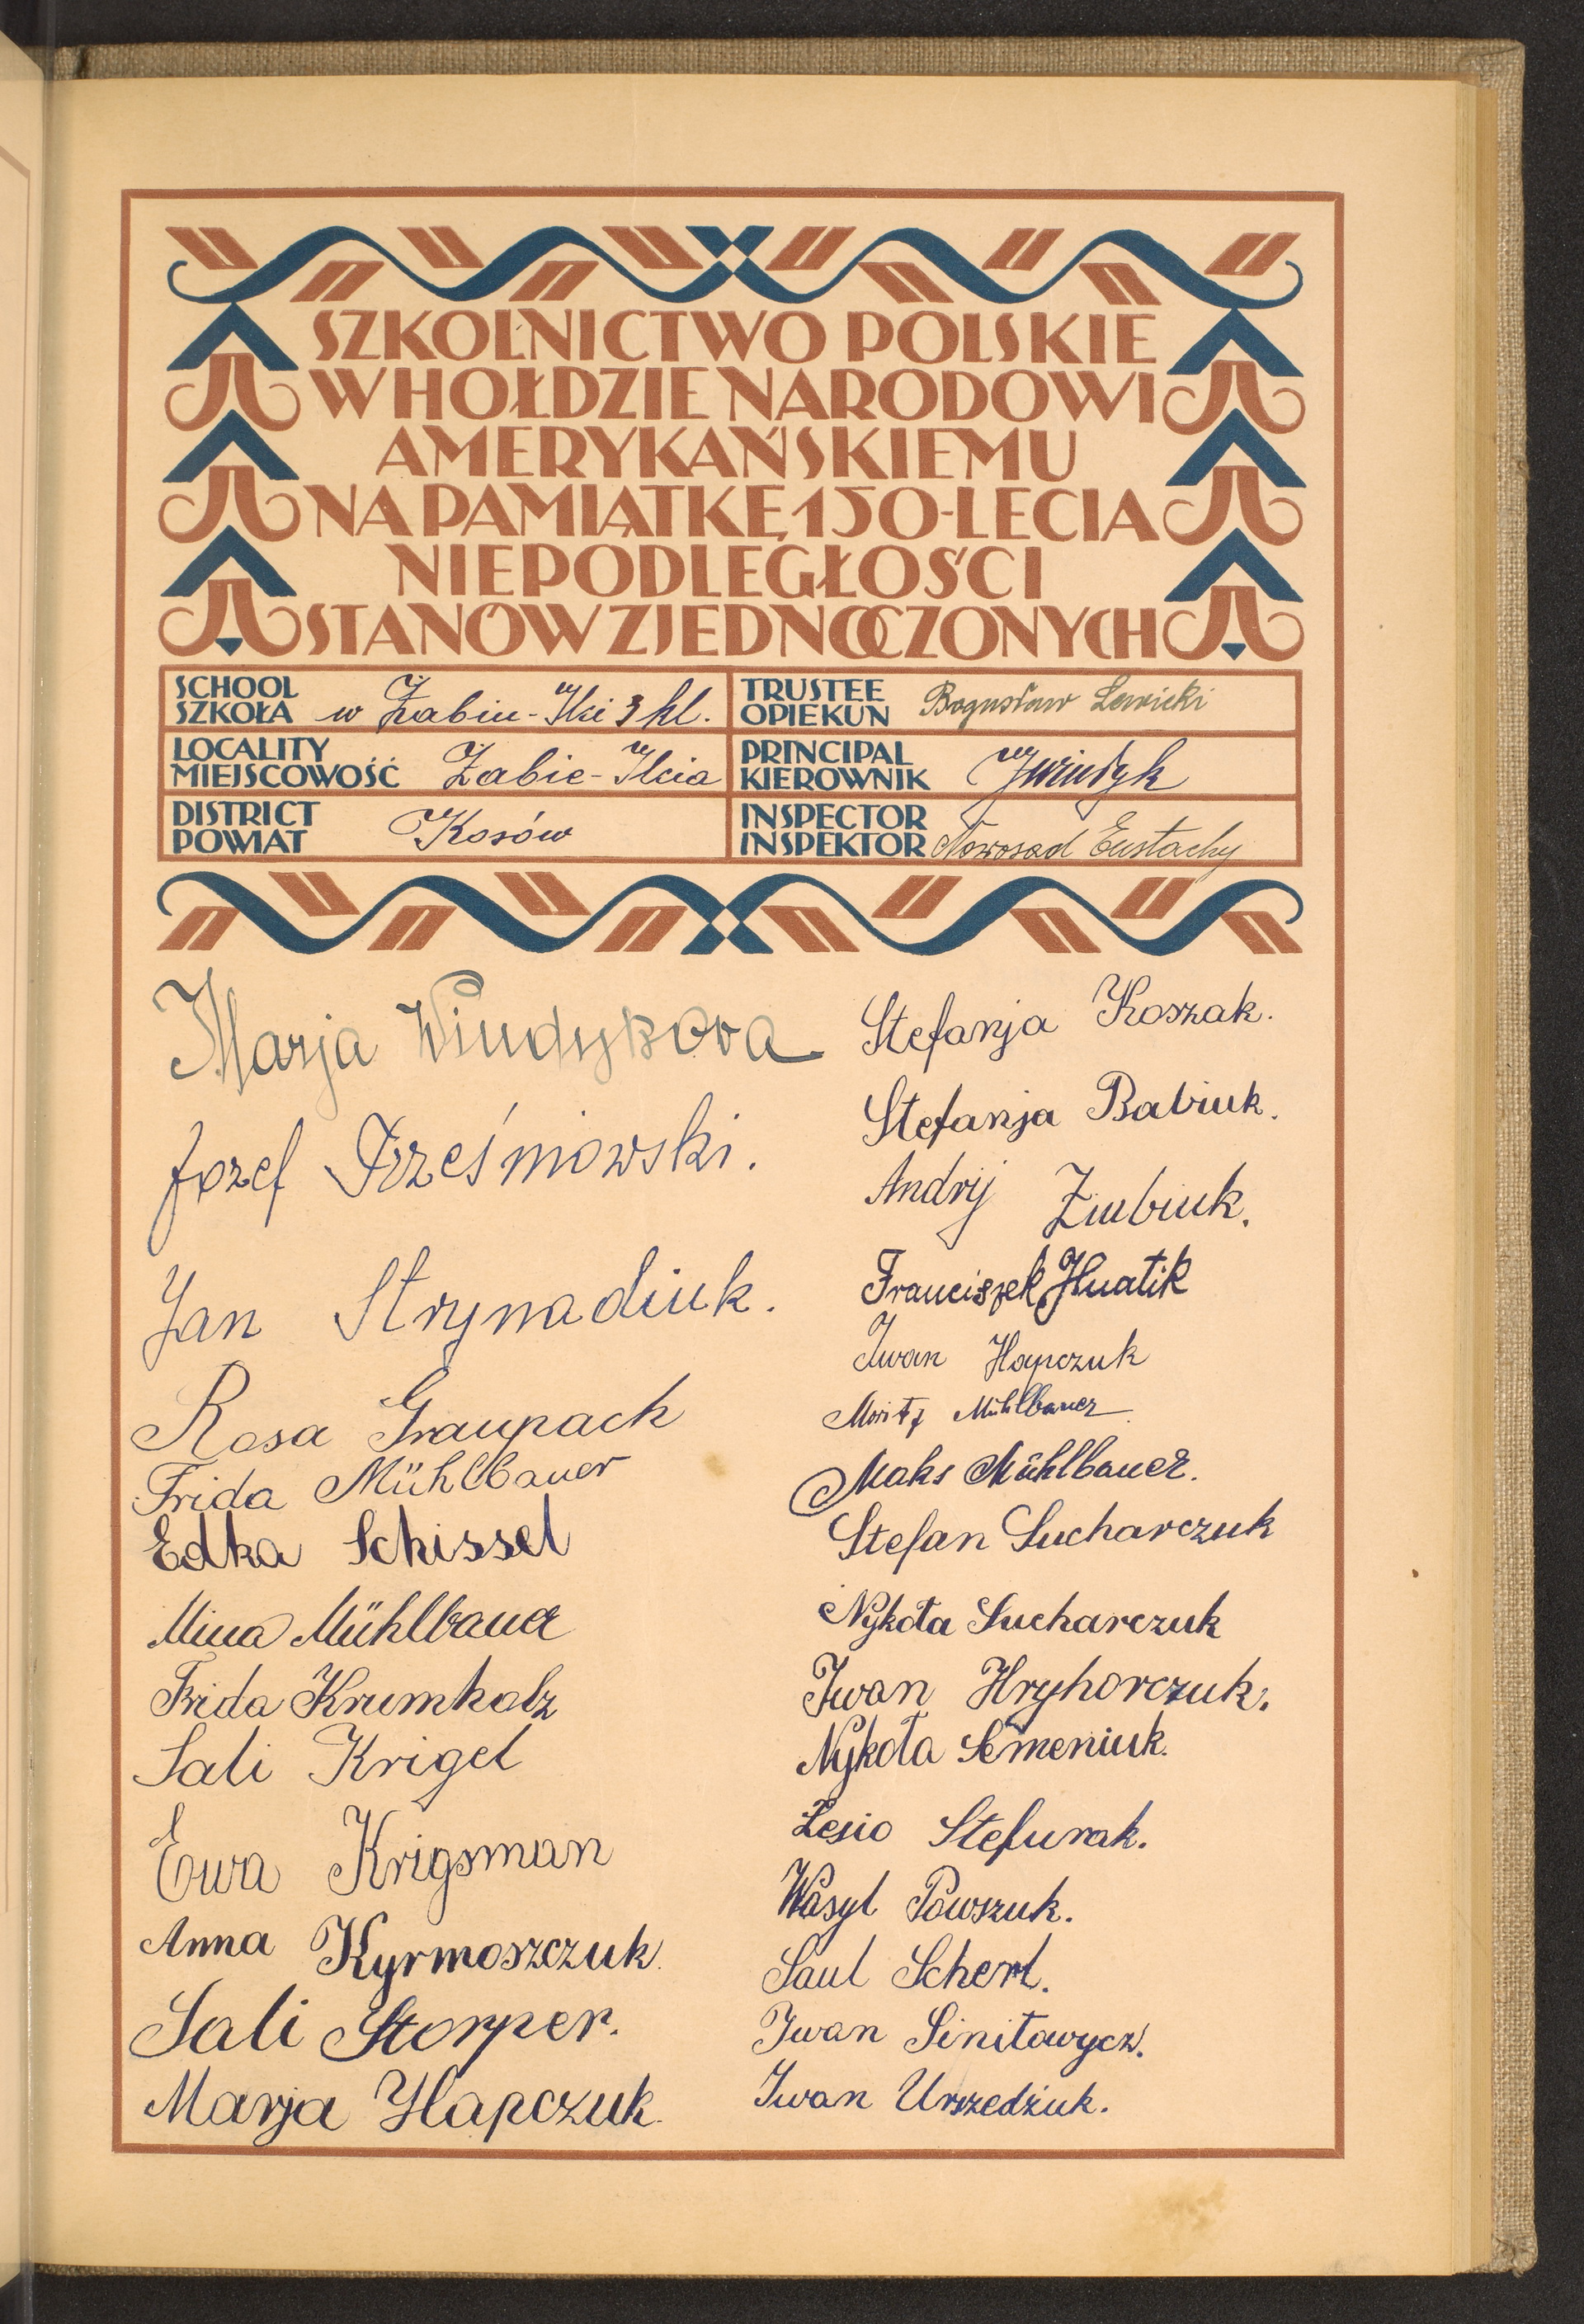 SZKOLNICTWO POLSKIE
W HOŁDZIE NARODOWI
AMERYKAŃSKIEMU
NA PAMIĄTKĘ 150-LECIA
NIEPODLEGŁOŚCI
STANÓW ZJEDNOCZONYCH
SCHOOL
SZKOŁA w Żabiu-Ilci 3 kl.
LOCALITY
MIEJSCOWOŚĆ Żabie-Ilcia
DISTRICT
POWIAT Kosów
TRUSTEE
OPIEKUN Bogusław Lewicki
PRINCIPAL
KIEROWNIK
INSPECTOR
INSPEKTOR Nowosad Eustachy
Marja Windykova
Jozef Trześniowski.
Jan Strynadiuk.
Rosa Graupach
Frida Mühlbauer
Edka Schissel
Mina Mühlbauer
Frida Krumholz
Sali Krigel
Ewa Krigsman
Anna Kyrmoszczuk.
Sali Storper.
Marja Hapczuk.
Stefanja Koszak.
Stefanja Babiuk.
Andrij Ziubiuk.
Franciszek Hnatik
Iwan Hapczuk
Moritz Mühlbauer
Maks Mühlbauer.
Stefan Sucharczuk
Nykoła Sucharczuk
Iwan Hryhorczuk.
Nykoła Semeniuk.
Lesio Stefurak.
Wasyl Powszuk.
Saul Scherl.
Iwan Sinitowycz.
Iwan Urszedżuk.